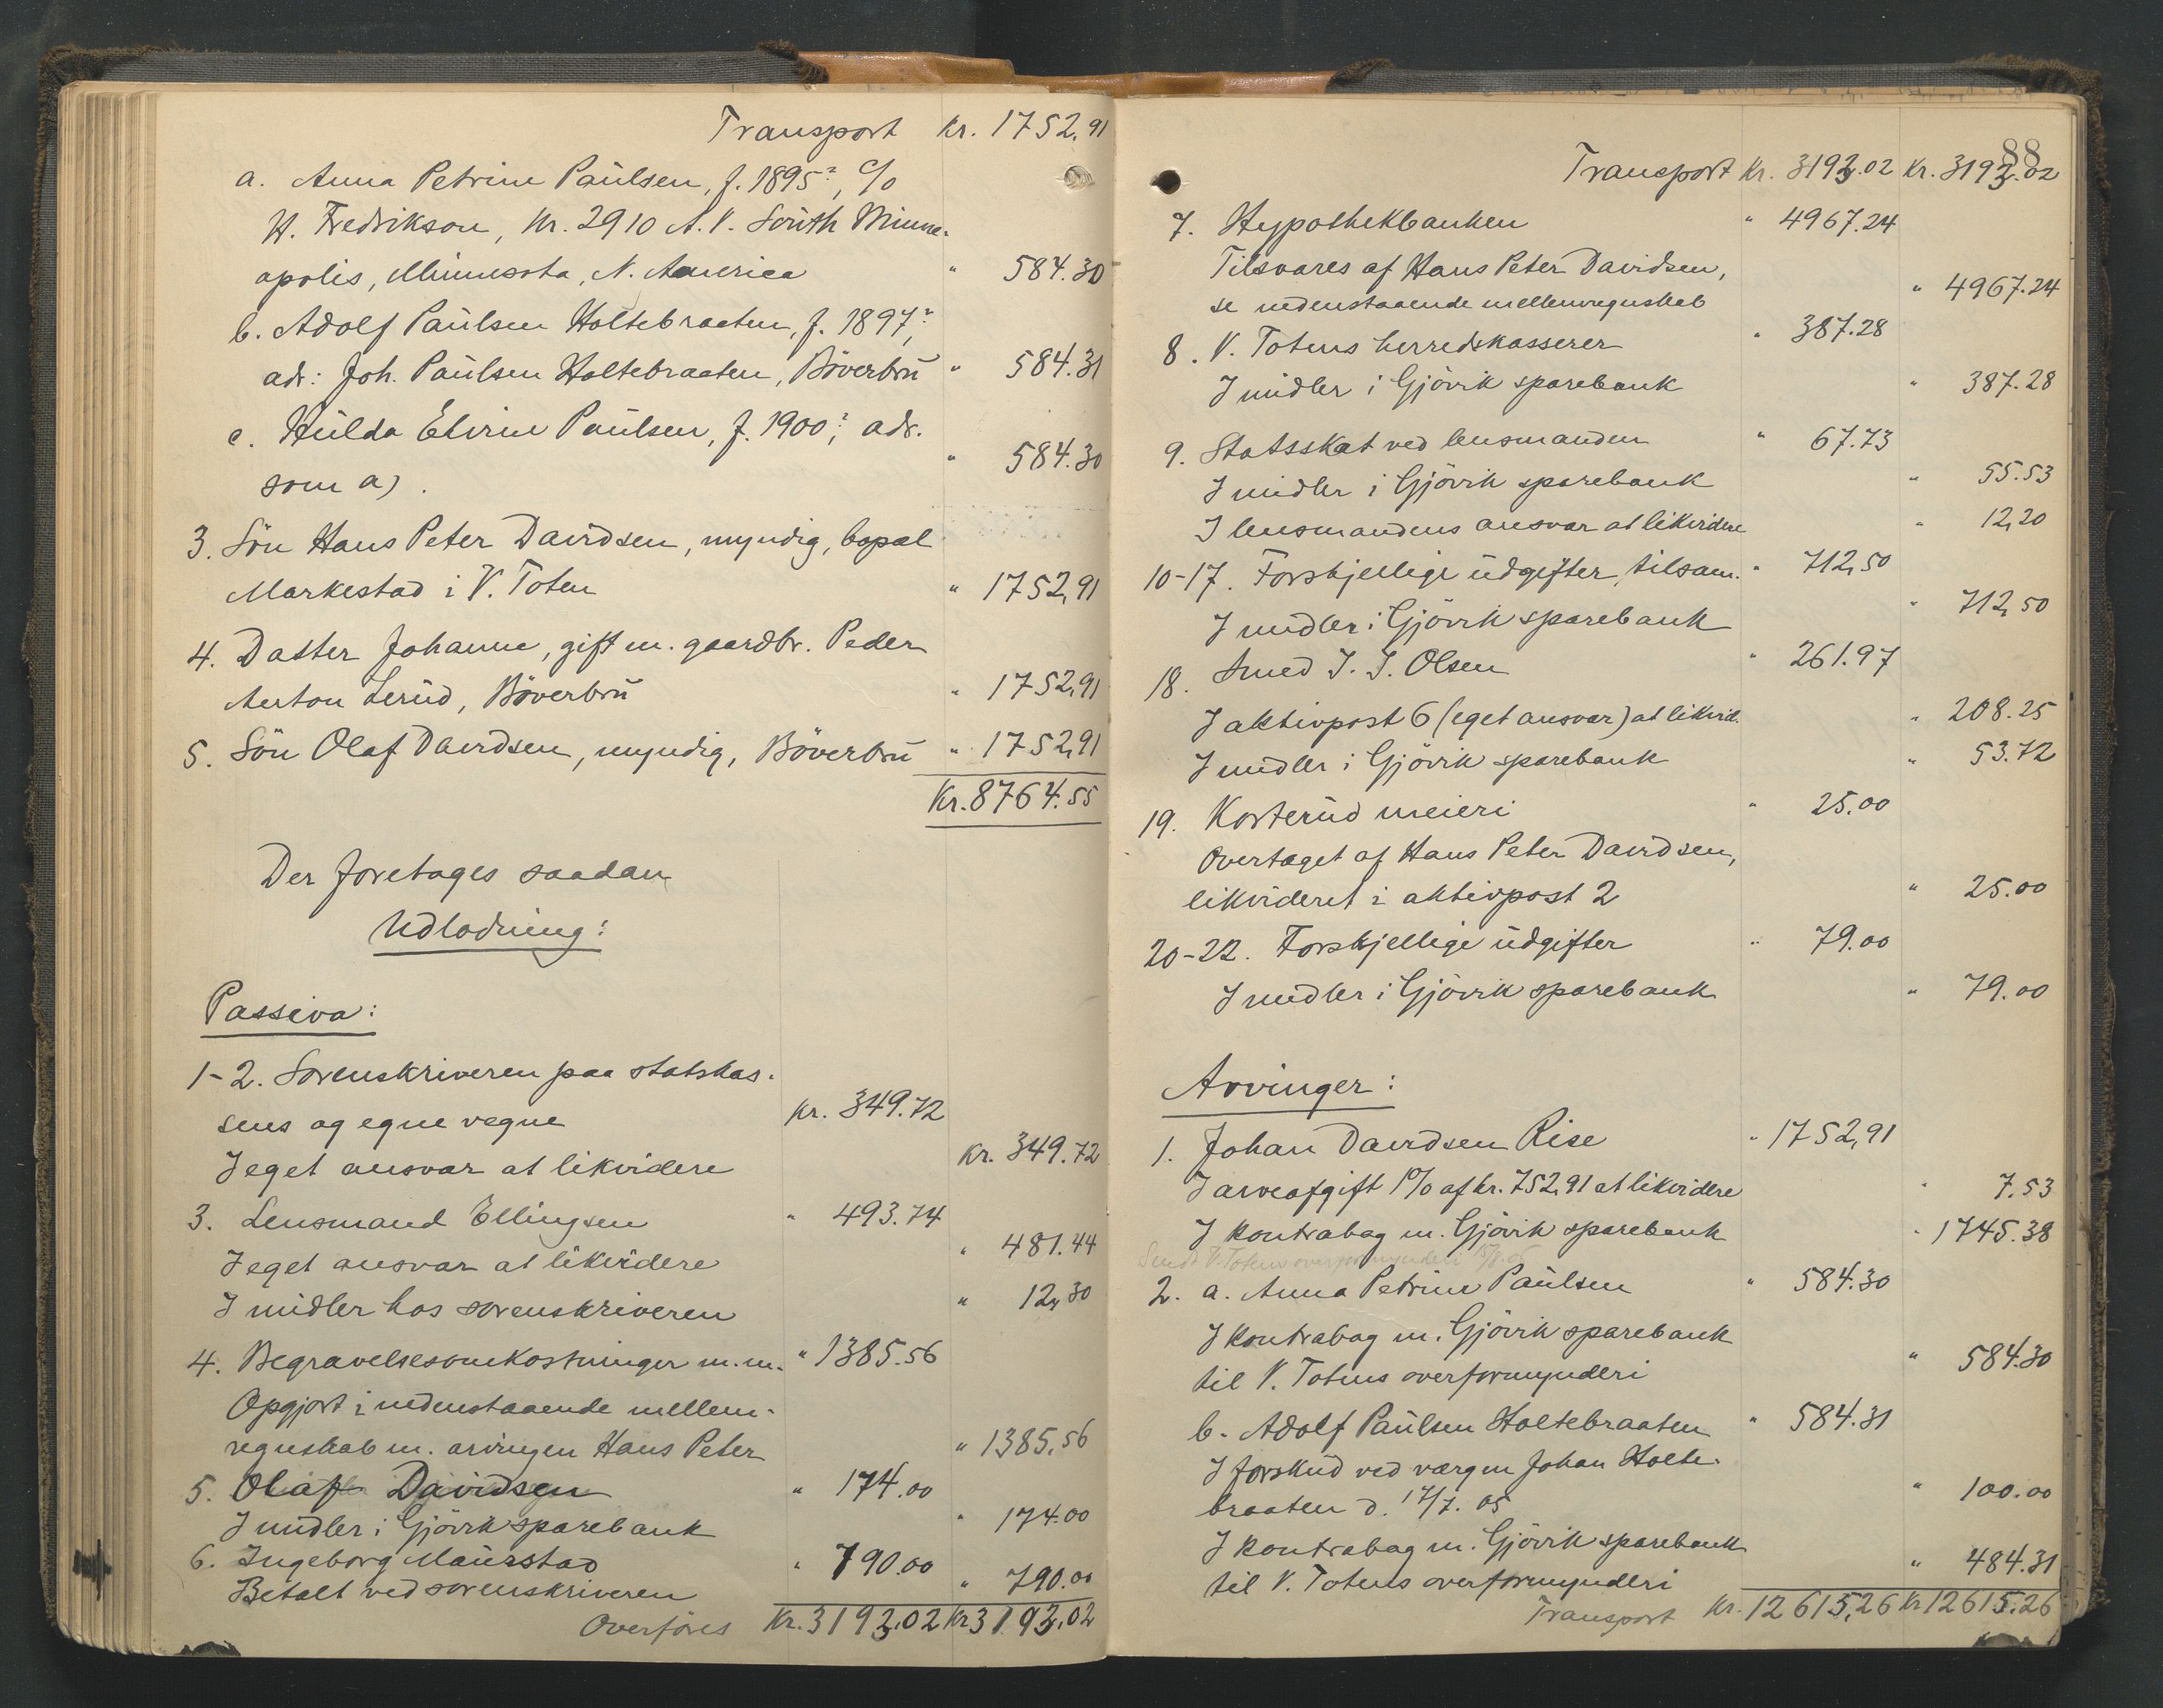 Transport Kr. 1752.91
a. Anna Petrine Paulsen, f. 1895?, c/o
H. Fredrikson, Nr. 2910 A.V. South Minne-
apolis, Minnesota, N. America " 584.30
b. Adolf Paulsen Holtebraaten, f. 1897?,
adr: Joh. Paulsen Holtebraaten, Böverbru " 584.31
c. Hulda Elvine Paulsen, f. 1900?, adr.
som a). " 584.30
3. Sön Hans Peter Davidsen, myndig, bopæl
Markestad i V. Toten " 1752,91
4. Datter Johanne, gift m. gaardbr. Peder
Anton Lerud, Böverbru " 1752,91
5. Sön Olaf Davidsen, myndig, Böverbru " 1752,91
Kr. 8764.55
Der foretages saadan
Udlodning:
Passiva:
1-2. Sorenskriveren paa statskas-
sens og egne vegne Kr. 349.72
I eget ansvar at likvidere Kr. 349.72
3. Lensmand Ellingsen " 493.74
I eget ansvar at likvidere " 481.44
I midler hos sorenskriveren " 12,30
4. Begravelsesomkostninger m.m. " 1385.56
Opgjort i nedenstaaende mellem-
regnskab m. arvingen Hans Peter " 1385,56
5. Olaf Davidsen " 174.00
I midler i Gjövik sparebank " 174.00
6. Ingeborg Maurstad " 790.00
Betalt ved sorenskriveren " 790.00
Overföres Kr. 3193.02 Kr 3193.02
88
Transport Kr. 3193.02 Kr. 3193.02
7. Hypothekbanken " 4967.24
Tilsvares af Hans Peter Davidsen,
se nedenstaaende mellemregnskab " 4967.24
8. V. Totens herredskasserer " 387.28
I midler i Gjövik sparebank " 387.28
9. Statsskat ved lensmanden " 67.73
I midler i Gjövik sparebank " 55.53
I lensmandens ansvar at likvidere " 12,20
10-17. Forskjellige udgifter, tilsam. " 712,50
I midler i Gjövik sparebank " 712,50
18. Smed J. J. Olsen " 261.97
I aktivpost 6 (eget ansvar) at likvid. " 208.25
I midler i Gjövik sparebank " 53.72
19. Kosterud meieri " 25.00
Overtaget af Hans Peter Davidsen,
likvideret i aktivpost 2 " 25.00
20-22. Forskjellige udgifter " 79.00
I midler i Gjövik sparebank " 79.00
Arvinger:
1. Johan Davidsen Rise " 1752,91
I arveafgift 1% af kr. 752,91 at likvidere " 7.53
I kontrabog m. Gjövik sparebank " 1745.38
Sendt V. Totens overformynderi
2. a. Anna Petrine Paulsen " 584.30
I kontrabog m. Gjövik sparebank
til V. Totens overformynderi " 584.30
b. Adolf Paulsen Holtebraaten " 584.31
I forskud ved værgen Johan Holte-
braaten d. 17/7. 05 " 100.00
I kontrabog m. Gjövik sparebank
til V. Totens overformynderi " 484.31
Transport Kr. 12615,26 Kr 12615.26